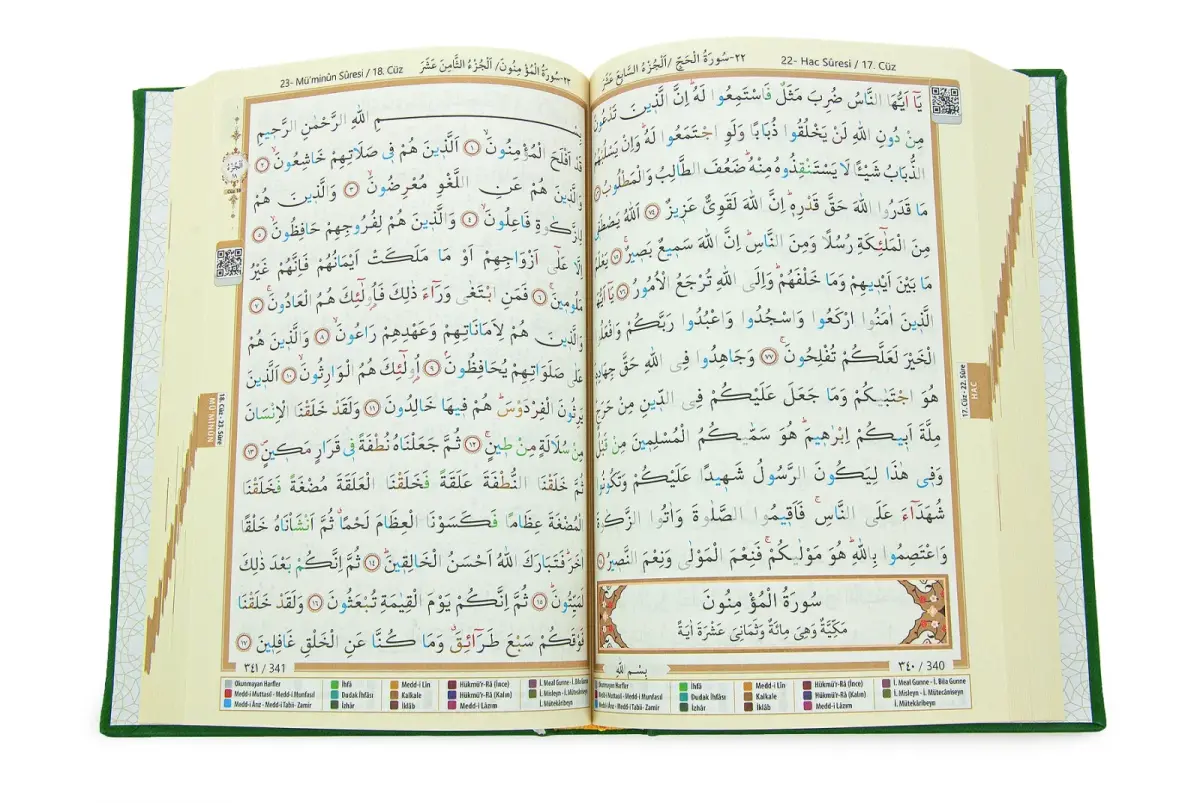 22- Hac Sûresi / 17. Cüz
٢٢-سُورَةُ الْحَجِّ /اَلْجُزْءُ السَّابِعَ عَشَرَ
يَٓا اَيُّهَا النَّاسُ ضُرِبَ مَثَلٌ فَاسْتَمِعُوا لَهُۜ اِنَّ الَّذ۪ينَ تَدْعُونَ
مِنْ دُونِ اللّٰهِ لَنْ يَخْلُقُوا ذُبَابًا وَلَوِ اجْتَمَعُوا لَهُۜ وَاِنْ يَسْلُبْهُمُ
الذُّبَابُ شَيْـًٔا لَا يَسْتَنْقِذُوهُ مِنْهُۜ ضَعُفَ الطَّالِبُ وَالْمَطْلُوبُ
مَا قَدَرُوا اللّٰهَ حَقَّ قَدْرِه۪ۜ اِنَّ اللّٰهَ لَقَوِيٌّ عَز۪يزٌ ﴿٧٤﴾ اَللّٰهُ يَصْطَف۪ي
مِنَ الْمَلٰٓئِكَةِ رُسُلًا وَمِنَ النَّاسِۜ اِنَّ اللّٰهَ سَم۪يعٌ بَص۪يرٌۚ ﴿٧٥﴾ يَعْلَمُ
مَا بَيْنَ اَيْد۪يهِمْ وَمَا خَلْفَهُمْۜ وَاِلَى اللّٰهِ تُرْجَعُ الْاُمُورُ ﴿٧٦﴾ يَٓا اَيُّهَا
الَّذ۪ينَ اٰمَنُوا ارْكَعُوا وَاسْجُدُوا وَاعْبُدُوا رَبَّكُمْ وَافْعَلُوا
الْخَيْرَ لَعَلَّكُمْ تُفْلِحُونَۚ ﴿٧٧﴾ وَجَاهِدُوا فِي اللّٰهِ حَقَّ جِهَادِه۪ۜ
هُوَ اجْتَبٰيكُمْ وَمَا جَعَلَ عَلَيْكُمْ فِي الدّ۪ينِ مِنْ حَرَجٍۜ
مِلَّةَ اَب۪يكُمْ اِبْرٰه۪يمَۜ هُوَ سَمّٰيكُمُ الْمُسْلِم۪ينَ مِنْ قَبْلُ
وَف۪ي هٰذَا لِيَكُونَ الرَّسُولُ شَه۪يدًا عَلَيْكُمْ وَتَكُونُوا
شُهَدَٓاءَ عَلَى النَّاسِۚ فَاَق۪يمُوا الصَّلٰوةَ وَاٰتُوا الزَّكٰوةَ
وَاعْتَصِمُوا بِاللّٰهِۜ هُوَ مَوْلٰيكُمْۚ فَنِعْمَ الْمَوْلٰى وَنِعْمَ النَّص۪يرُ
سُورَةُ الْمُؤْمِنُونَ
مَكِّيَّةٌ وَهِيَ مِائَةٌ وَثَمَانِيَ عَشْرَةَ اٰيَةً
بِسْمِ اللّٰهِ
٣٤٠ / 340
17. Cüz - 22. Sûre
HAC
Okunmayan Harfler
Medd-i Muttasıl - Medd-i Munfasıl
Medd-i Ârız - Medd-i Tabîi - Zamir
İhfâ
Dudak İhfâsı
İzhâr
Medd-i Lîn
Kalkale
İklâb
Hükmü'r-Râ (İnce)
Hükmü'r-Râ (Kalın)
Medd-i Lâzım
İ. Meal Gunne - İ. Bila Gunne
İ. Misleyn - İ. Mütecâniseyn
İ. Mütekâribeyn
23- Mü'minûn Sûresi / 18. Cüz
٢٣-سُورَةُ الْمُؤْمِنُونَ/ اَلْجُزْءُ الثَّامِنَ عَشَرَ
بِسْمِ اللّٰهِ الرَّحْمٰنِ الرَّح۪يمِ
قَدْ اَفْلَحَ الْمُؤْمِنُونَۙ ﴿١﴾ اَلَّذ۪ينَ هُمْ ف۪ي صَلَاتِهِمْ خَاشِعُونَۙ ﴿٢﴾
وَالَّذ۪ينَ هُمْ عَنِ اللَّغْوِ مُعْرِضُونَۙ ﴿٣﴾ وَالَّذ۪ينَ هُمْ
لِلزَّكٰوةِ فَاعِلُونَۙ ﴿٤﴾ وَالَّذ۪ينَ هُمْ لِفُرُوجِهِمْ حَافِظُونَۙ ﴿٥﴾
اِلَّا عَلٰٓى اَزْوَاجِهِمْ اَوْ مَا مَلَكَتْ اَيْمَانُهُمْ فَاِنَّهُمْ غَيْرُ
مَلُوم۪ينَۚ ﴿٦﴾ فَمَنِ ابْتَغٰى وَرَٓاءَ ذٰلِكَ فَاُو۬لٰٓئِكَ هُمُ الْعَادُونَۚ ﴿٧﴾
وَالَّذ۪ينَ هُمْ لِاَمَانَاتِهِمْ وَعَهْدِهِمْ رَاعُونَۙ ﴿٨﴾ وَالَّذ۪ينَ هُمْ
عَلٰى صَلَوَاتِهِمْ يُحَافِظُونَۢ ﴿٩﴾ اُو۬لٰٓئِكَ هُمُ الْوَارِثُونَۙ ﴿١٠﴾ اَلَّذ۪ينَ
يَرِثُونَ الْفِرْدَوْسَۜ هُمْ ف۪يهَا خَالِدُونَ ﴿١١﴾ وَلَقَدْ خَلَقْنَا الْاِنْسَانَ
مِنْ سُلَالَةٍ مِنْ ط۪ينٍۚ ﴿١٢﴾ ثُمَّ جَعَلْنَاهُ نُطْفَةً ف۪ي قَرَارٍ مَك۪ينٍۖ ﴿١٣﴾
ثُمَّ خَلَقْنَا النُّطْفَةَ عَلَقَةً فَخَلَقْنَا الْعَلَقَةَ مُضْغَةً فَخَلَقْنَا
الْمُضْغَةَ عِظَامًا فَكَسَوْنَا الْعِظَامَ لَحْمًاۗ ثُمَّ اَنْشَأْنَاهُ خَلْقًا
اٰخَرَۜ فَتَبَارَكَ اللّٰهُ اَحْسَنُ الْخَالِق۪ينَۜ ﴿١٤﴾ ثُمَّ اِنَّكُمْ بَعْدَ ذٰلِكَ
لَمَيِّتُونَۜ ﴿١٥﴾ ثُمَّ اِنَّكُمْ يَوْمَ الْقِيٰمَةِ تُبْعَثُونَ ﴿١٦﴾ وَلَقَدْ خَلَقْنَا
فَوْقَكُمْ سَبْعَ طَرَٓائِقَۗ وَمَا كُنَّا عَنِ الْخَلْقِ غَافِل۪ينَ ﴿١٧﴾
٣٤١ / 341
18. Cüz - 23. Sûre
MÜ'MİNÛN
Okunmayan Harfler
Medd-i Muttasıl - Medd-i Munfasıl
Medd-i Ârız - Medd-i Tabîi - Zamir
İhfâ
Dudak İhfâsı
İzhâr
Medd-i Lîn
Kalkale
İklâb
Hükmü'r-Râ (İnce)
Hükmü'r-Râ (Kalın)
Medd-i Lâzım
İ. Meal Gunne - İ. Bila
İ. Misleyn - İ. Mütecâniseyn
İ. Mütekâribeyn